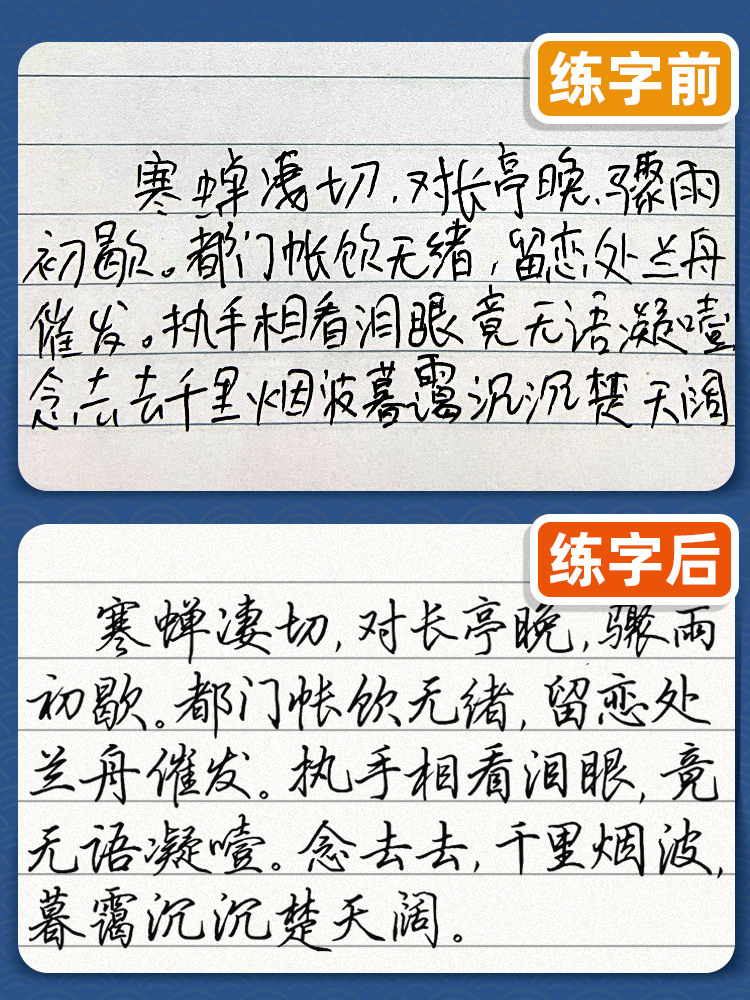 练字前
寒蝉凄切,对长亭晚,骤雨
初歇。都门帐饮无绪,留恋处兰舟
催发。执手相看泪眼竟无语凝噎
念去去千里烟波暮霭沉沉楚天阔
练字后
寒蝉凄切,对长亭晚,骤雨
初歇。都门帐饮无绪,留恋处
兰舟催发。执手相看泪眼,竟
无语凝噎。念去去,千里烟波,
暮霭沉沉楚天阔。